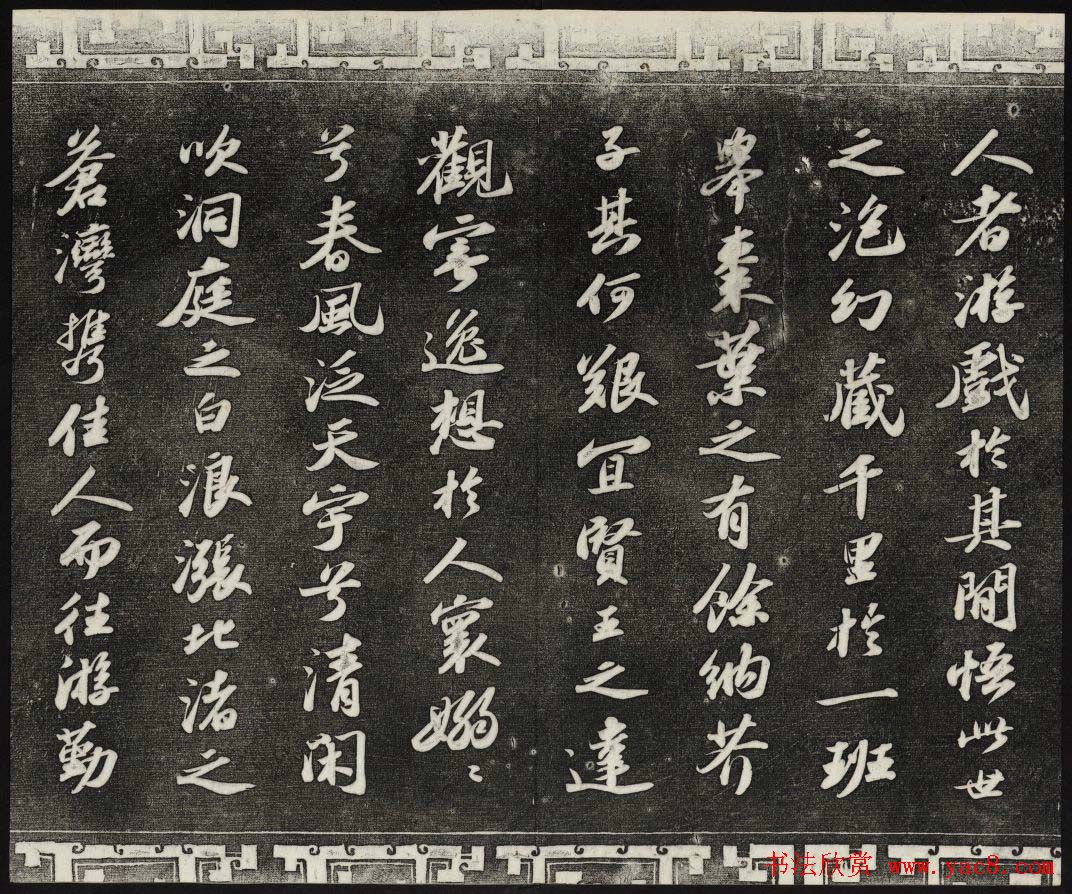 人者游戲於其間悟此世
之泡幻藏千里於一班
舉棗葉之有餘納芥
子其何艱宜賢王之達
觀寄逸想於人寰嫋〻
兮春風泛天宇兮清閑
吹洞庭之白浪漲北渚之
蒼灣攜佳人而往游勤
书法欣赏 www.yac8.com